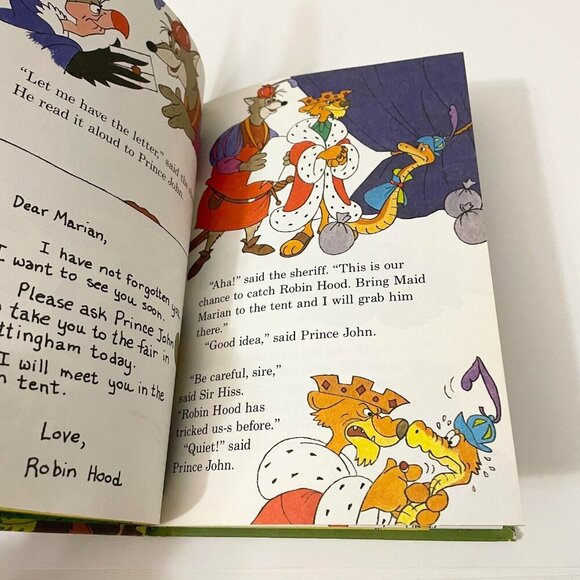 "Let me have the letter," said the
He read it aloud to Prince John.
Dear Marian,
I have not forgotten you.
I want to see you soon.
Please ask Prince John
to take you to the fair in
ttingham today.
I will meet you in the
tent.
Love,
Robin Hood
"Aha!" said the sheriff. "This is our
chance to catch Robin Hood. Bring Maid
Marian to the tent and I will grab him
there."
"Good idea," said Prince John.
"Be careful, sire,"
said Sir Hiss.
"Robin Hood has
tricked us-s before."
"Quiet!" said
Prince John.